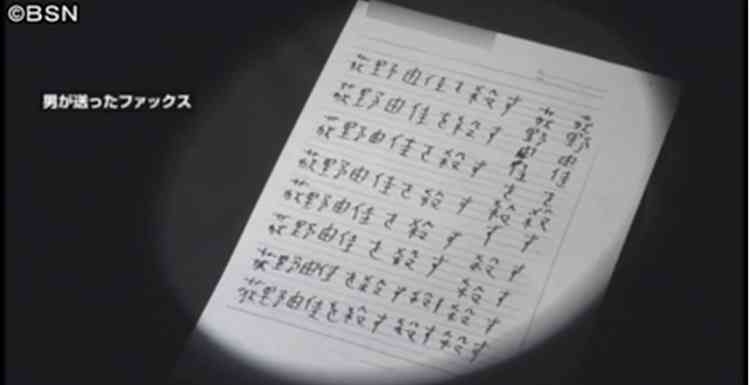 ©BSN
男が送ったファックス
荻野由佳を殺す
荻野由佳を殺す
荻野由佳を殺す
荻野由佳を殺す
荻野由佳を殺す 殺す
荻野由佳を殺す 殺す
荻野由佳を殺す殺す殺す
荻野由佳を殺す殺す殺す
荻野由佳を殺す
荻野由佳を殺す